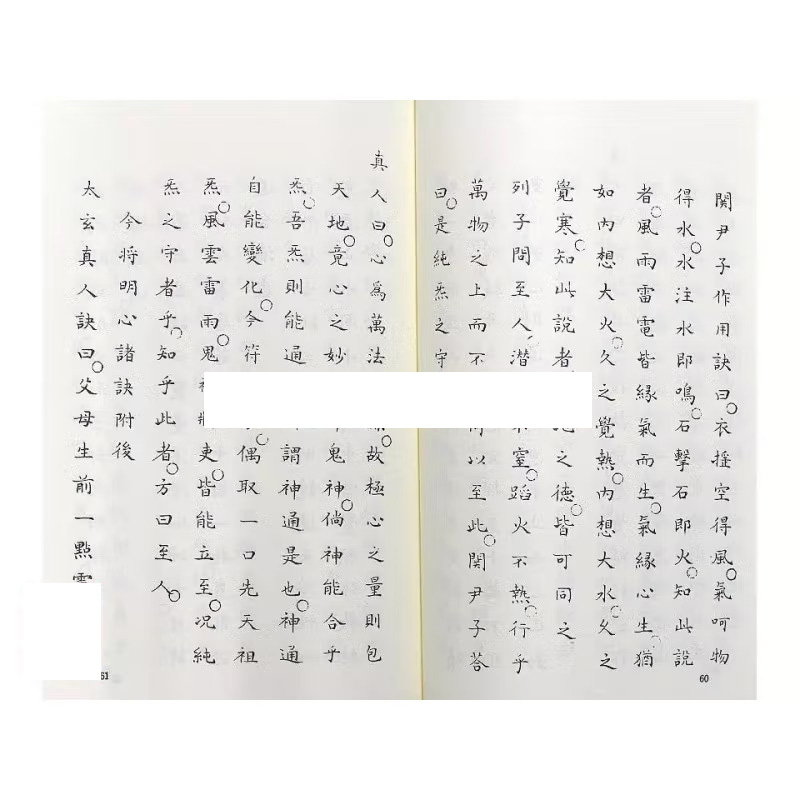 関尹子作用訣曰。衣摇空得風。氣呵物
得水。水注水即鳴。石擊石即火。知此說
者。風雨雷電皆緣氣而生。氣緣心生。猶
如内想大火。久之覺熱。内想大水。久之
覺寒。知此說者 之德。皆可同之。
列子問至人潛 窒。蹈火不熱。行乎
萬物之上而不 以至此。関尹子荅
曰。是純炁之守
真人曰。心為萬法 故極心之量則包
天地。竟心之妙 鬼神。倘神能合乎
炁。吾炁則能通 謂神通是也。神通
自能變化。今符 偶取一口先天祖
炁。風雲雷雨。鬼 吏。皆能立至。况純
炁之守者乎。知乎此者。方曰至人。
今将明心諸訣附後
太玄真人訣曰。父母生前一點
60